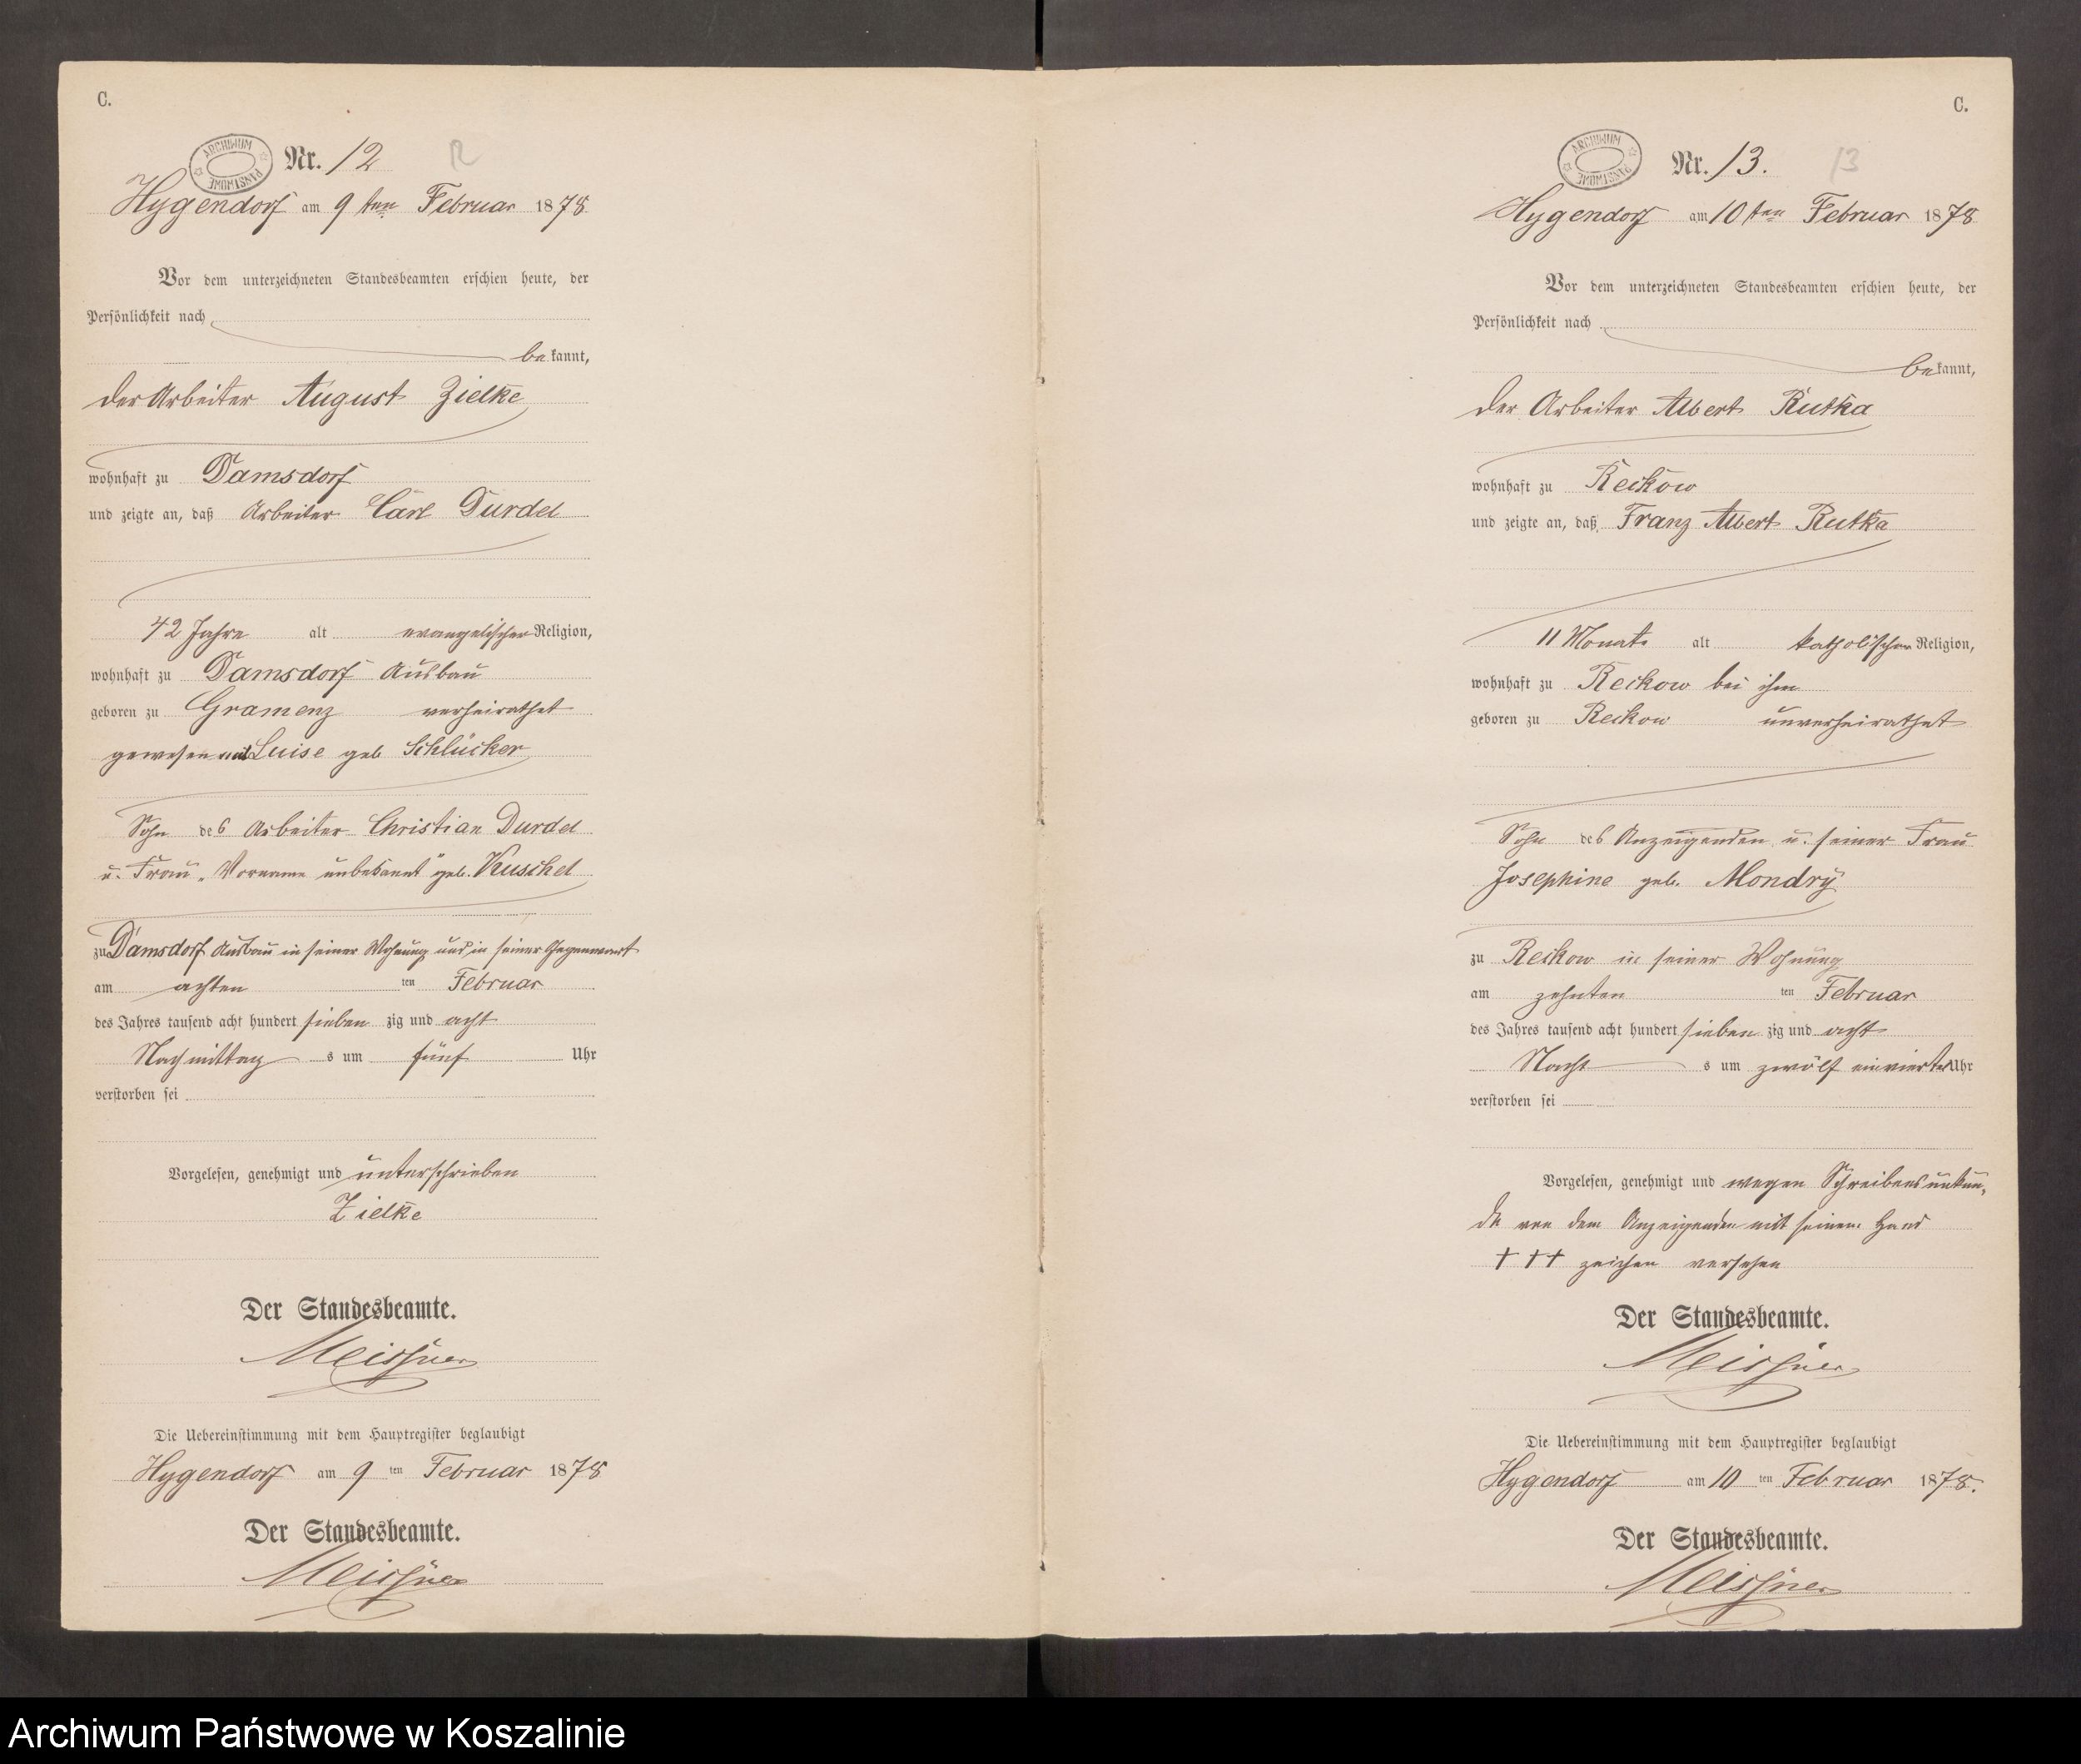 C.
ARCHIWUM PAŃSTWOWE
Nr. 12
12
Hygendorf am 9 ten Februar 1878
Vor dem unterzeichneten Standesbeamten erschien heute, der
Persönlichkeit nach
bekannt,
der Arbeiter August Zielke
wohnhaft zu Damsdorf
und zeigte an, daß Arbeiter Carl Durdel
42 Jahre alt evangelischer Religion,
wohnhaft zu Damsdorf Ausbau
geboren zu Gramenz verheirathet
gewesen mit Luise geb Schlücker
Sohn des Arbeiter Christian Durdel
u. Frau „Vorname unbekannt" geb. Kuschel
zu Damsdorf Ausbau in seiner Wohnung und in seiner Gegenwart
am achten ten Februar
des Jahres tausend acht hundert sieben zig und acht
Nachmittag s um fünf Uhr
verstorben sei
Vorgelesen, genehmigt und unterschrieben
Zielke
Der Standesbeamte.
Meissner
Die Uebereinstimmung mit dem Hauptregister beglaubigt
Hygendorf am 9 ten Februar 1878
Der Standesbeamte.
Meissner
C.
ARCHIWUM PAŃSTWOWE
Nr. 13.
13
Hygendorf am 10 ten Februar 1878
Vor dem unterzeichneten Standesbeamten erschien heute, der
Persönlichkeit nach
bekannt,
der Arbeiter Albert Rutka
wohnhaft zu Reckow
und zeigte an, daß Franz Albert Rutka
11 Monate alt katholischer Religion,
wohnhaft zu Reckow bei ihm
geboren zu Reckow unverheirathet
Sohn des Anzeigenden u. seiner Frau
Josephine geb. Mondry
zu Reckow in seiner Wohnung
am zehnten ten Februar
des Jahres tausend acht hundert sieben zig und acht
Nacht s um zwölf einviertel Uhr
verstorben sei
Vorgelesen, genehmigt und wegen Schreibensunkun-
de von dem Anzeigenden mit seinem Hand
+++ zeichen versehen
Der Standesbeamte.
Meissner
Die Uebereinstimmung mit dem Hauptregister beglaubigt
Hygendorf am 10 ten Februar 1878.
Der Standesbeamte.
Meissner
Archiwum Państwowe w Koszalinie